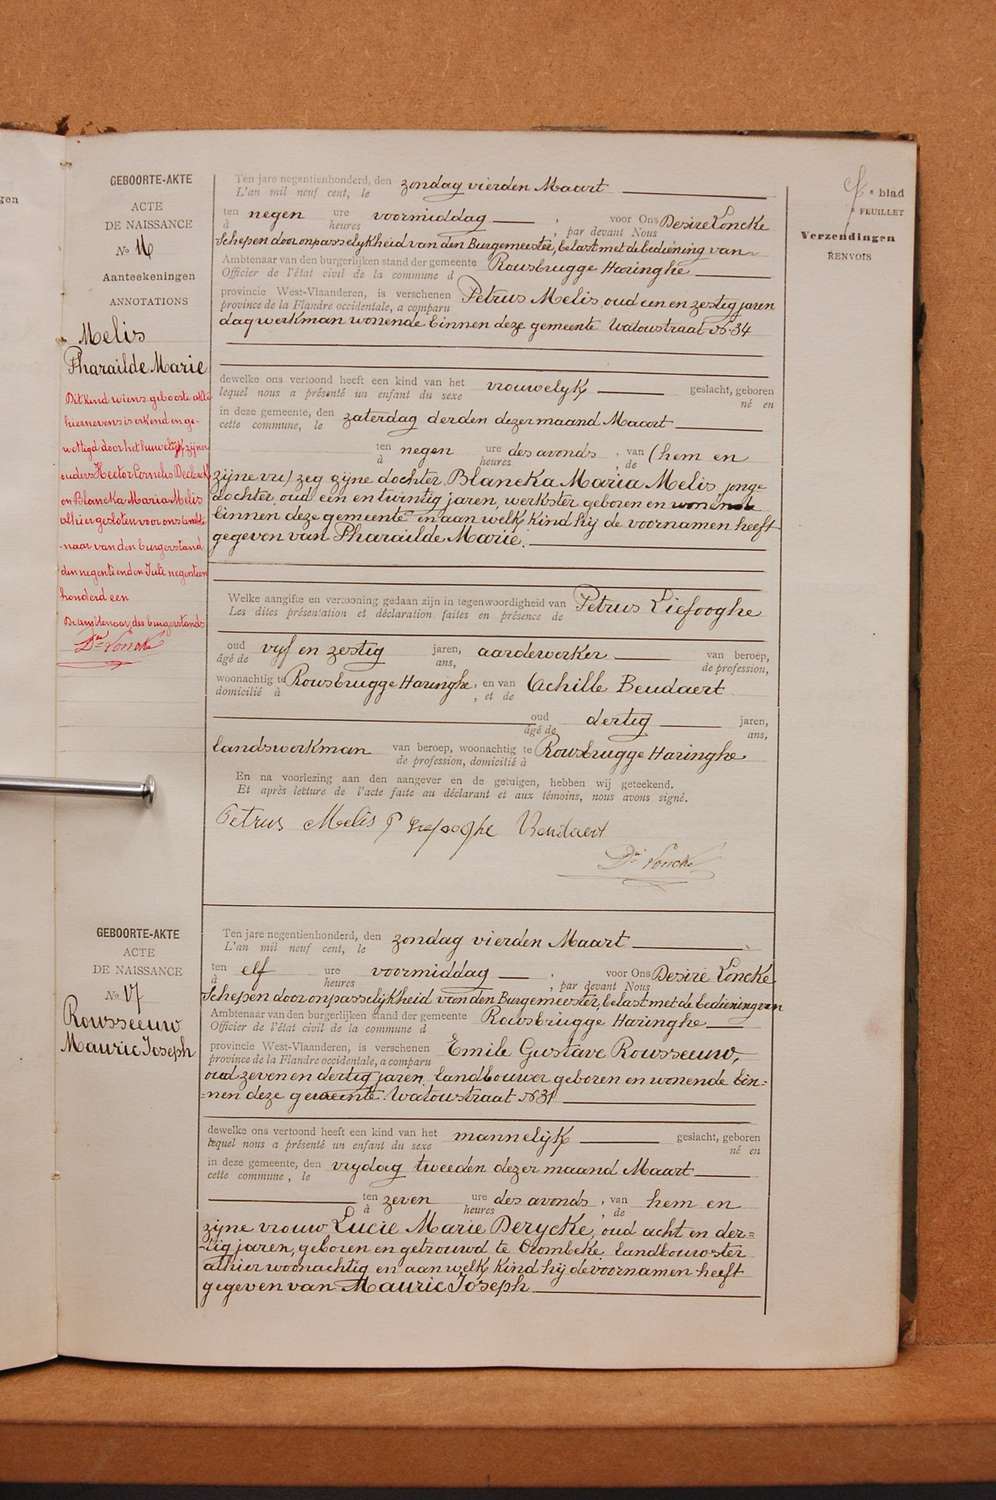 gen
blad
FEUILLET
Verzendingen
RENVOIS
GEBOORTE-AKTE
ACTE
DE NAISSANCE
No 16
Aanteekeningen
ANNOTATIONS
Melis
Pharaïlde Marie
Dit kind wiens geboorte akte
hiernevens is erkend en ge-
wettigd door het huwelijk zijner
ouders Hector Cornelis Declerck
en Blancka Maria Melis
alhier gesloten voor ons ambte-
naar van den burgerstand
den negentienden Juli negentien
honderd een
De ambtenaar des burgerstands
Dré Loncke
Ten jare negentienhonderd, den zondag vierden Maart
L'an mil neuf cent, le
ten negen ure voormiddag , voor Ons Desiré Loncke
à heures , par devant Nous
Schepen door onpasselijkheid van den Burgemeester, belast met de bediening van
Ambtenaar van den burgerlijken stand der gemeente Rousbrugge Haringhe
Officier de l'état civil de la commune d
provincie West-Vlaanderen, is verschenen Petrus Melis, oud een en zestig jaren
province de la Flandre occidentale, a comparu
dagwerkman wonende binnen deze gemeente Watoustraat No 34
dewelke ons vertoond heeft een kind van het vrouwelijk geslacht, geboren
lequel nous a présenté un enfant du sexe né en
in deze gemeente, den zaterdag derden dezer maand Maart
cette commune, le
ten negen ure des avonds , van (hem en
à heures de
zijne vr) zeg zijne dochter Blancka Maria Melis, jonge
dochter, oud een en twintig jaren, werkster geboren en wonende
binnen deze gemeente en aan welk kind hij de voornamen heeft
gegeven van Pharaïlde Marie.
Welke aangifte en vertooning gedaan zijn in tegenwoordigheid van Petrus Liefooghe
Les dites présentation et déclaration faites en présence de
oud vijf en zestig jaren, aardewerker van beroep,
âgé de ans, de profession,
woonachtig te Rousbrugge Haringhe, en van Achille Beudaert
domicilié à , et de
oud dertig jaren,
âgé de ans,
landswerkman van beroep, woonachtig te Rousbrugge Haringhe
de profession, domicilié à
En na voorlezing aan den aangever en de getuigen, hebben wij geteekend.
Et après lecture de l'acte faite au déclarant et aux témoins, nous avons signé.
Petrus Melis P Liefooghe Beudaert
Dré Loncke
GEBOORTE-AKTE
ACTE
DE NAISSANCE
No 17
Rousseeuw
Mauric Joseph
Ten jare negentienhonderd, den zondag vierden Maart
L'an mil neuf cent, le
ten elf ure voormiddag , voor Ons Desiré Loncke
à heures , par devant Nous
Schepen door onpasselijkheid van den Burgemeester, belast met de bediening van
Ambtenaar van den burgerlijken stand der gemeente Rousbrugge Haringhe
Officier de l'état civil de la commune d
provincie West-Vlaanderen, is verschenen Emile Gustave Rousseeuw,
province de la Flandre occidentale, a comparu
oud zeven en dertig jaren, landbouwer geboren en wonende bin-
nen deze gemeente Watoustraat No 31
dewelke ons vertoond heeft een kind van het mannelijk geslacht, geboren
lequel nous a présenté un enfant du sexe né en
in deze gemeente, den vrijdag tweeden dezer maand Maart
cette commune , le
ten zeven ure des avonds , van hem en
à heures , de
zijne vrouw Lucie Marie Derycke, oud acht en der-
tig jaren, geboren en getrouwd te Crombeke landbouwster
alhier woonachtig en aan welk kind hij de voornamen heeft
gegeven van Mauric Joseph